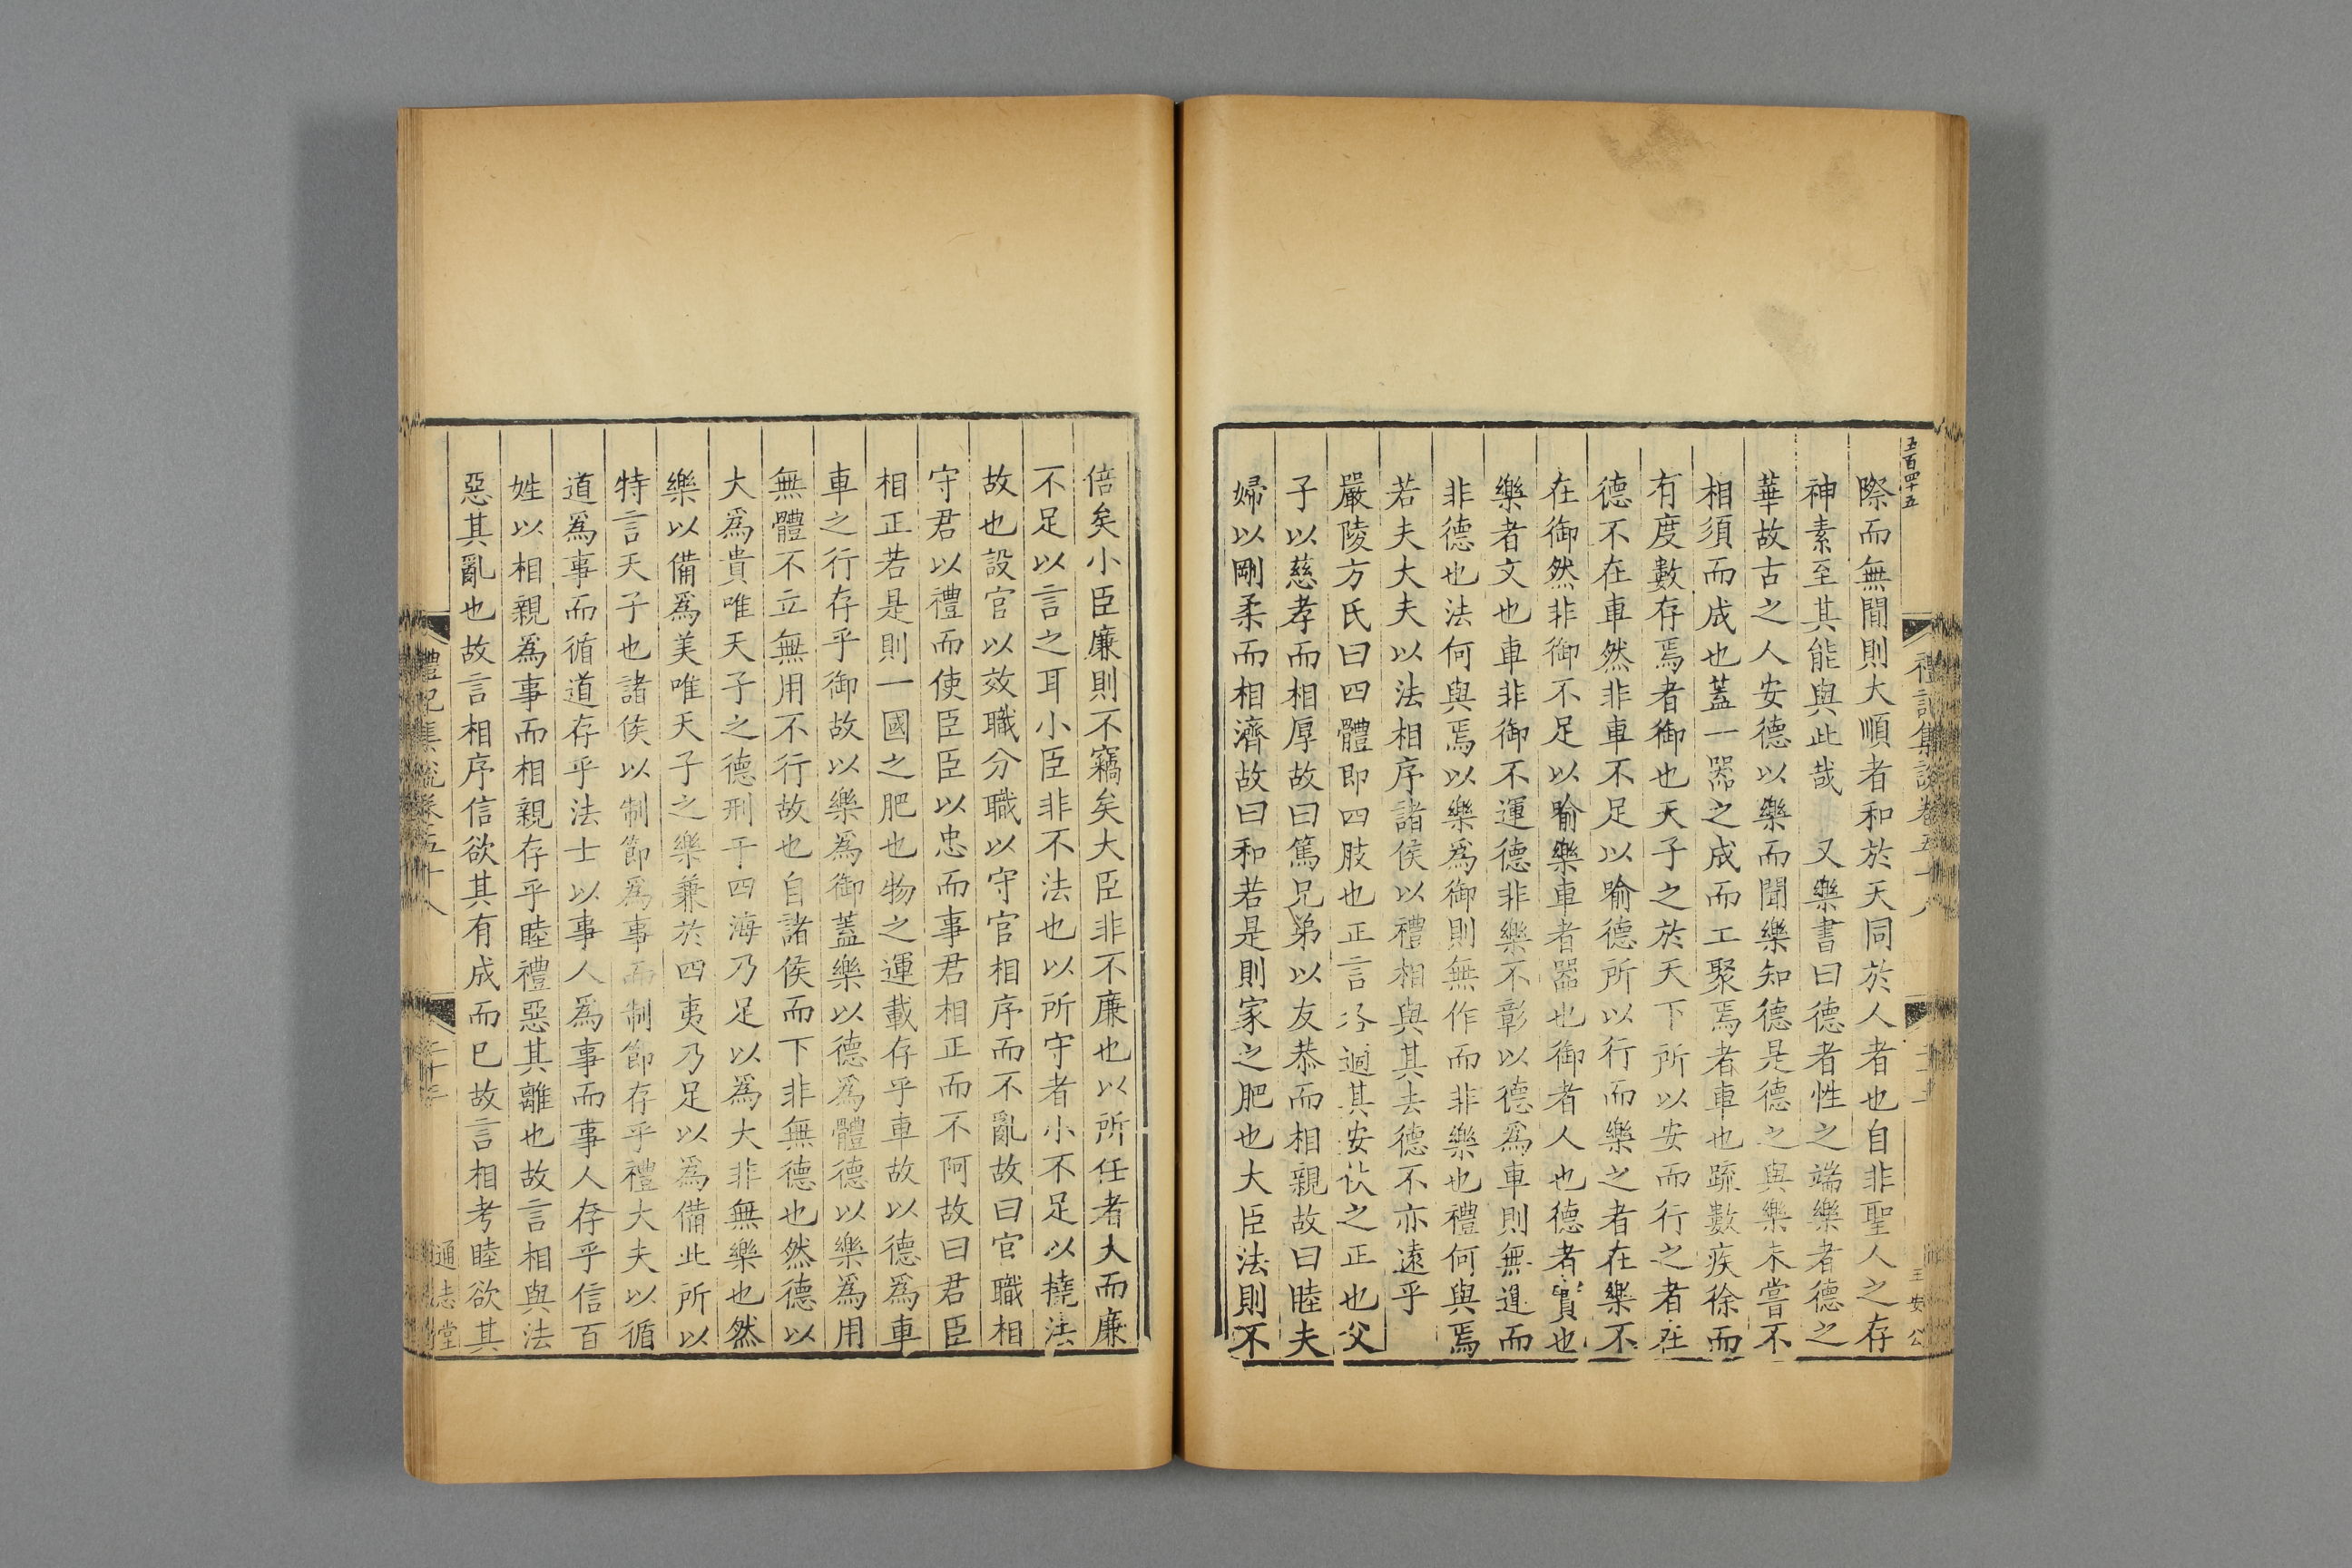 五百四十五
際而無間則大順者和於天同於人者也自非聖人之存
神素至其能與此哉 又樂書曰德者性之端樂者德之
華故古之人安德以樂而聞樂知德是德之與樂未嘗不
相須而成也蓋一器之成而工聚焉者車也疏數疾徐而
有度數存焉者御也天子之於天下所以安而行之者在
德不在車然非車不足以喻德所以行而樂之者在樂不
在御然非御不足以喻樂車者器也御者人也德者實也
樂者文也車非御不運德非樂不彰以德為車則無進而
非德也法何與焉以樂為御則無作而非樂也禮何與焉
若夫大夫以法相序諸侯以禮相與其去德不亦遠乎
嚴陵方氏曰四體即四肢也正言其安佚之正也父
子以慈孝而相厚故曰篤兄弟以友恭而相親故曰睦夫
婦以剛柔而相濟故曰和若是則家之肥也大臣法則不
倍矣小臣廉則不竊矣大臣非不廉也以所任者大而廉
不足以言之耳小臣非不法也以所守者小不足以撓法
故也設官以效職分職以守官相序而不亂故曰官職相
守君以禮而使臣臣以忠而事君相正而不阿故曰君臣
相正若是則一國之肥也物之運載存乎車故以德為車
車之行存乎御故以樂為御蓋樂以德為體德以樂為用
無體不立無用不行故也自諸侯而下非無德也然德以
大為貴唯天子之德刑于四海乃足以為大非無樂也然
樂以備為美唯天子之樂兼於四夷乃足以為備此所以
特言天子也諸侯以制節為事而制節存乎禮大夫以循
道為事而循道存乎法士以事人為事而事人存乎信百
姓以相親為事而相親存乎睦禮惡其離也故言相與法
惡其亂也故言相序信欲其有成而已故言相考睦欲其
禮記集說卷五十八
通志堂